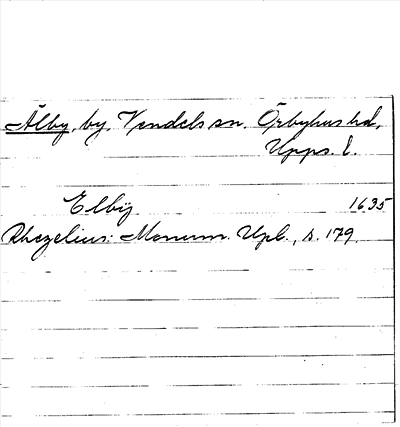 Älby, by, Vendels sn. Örbyhus hd,
Upps. l.
Elbÿ 1635
Rhezelius: Monum. Upl., s. 179.